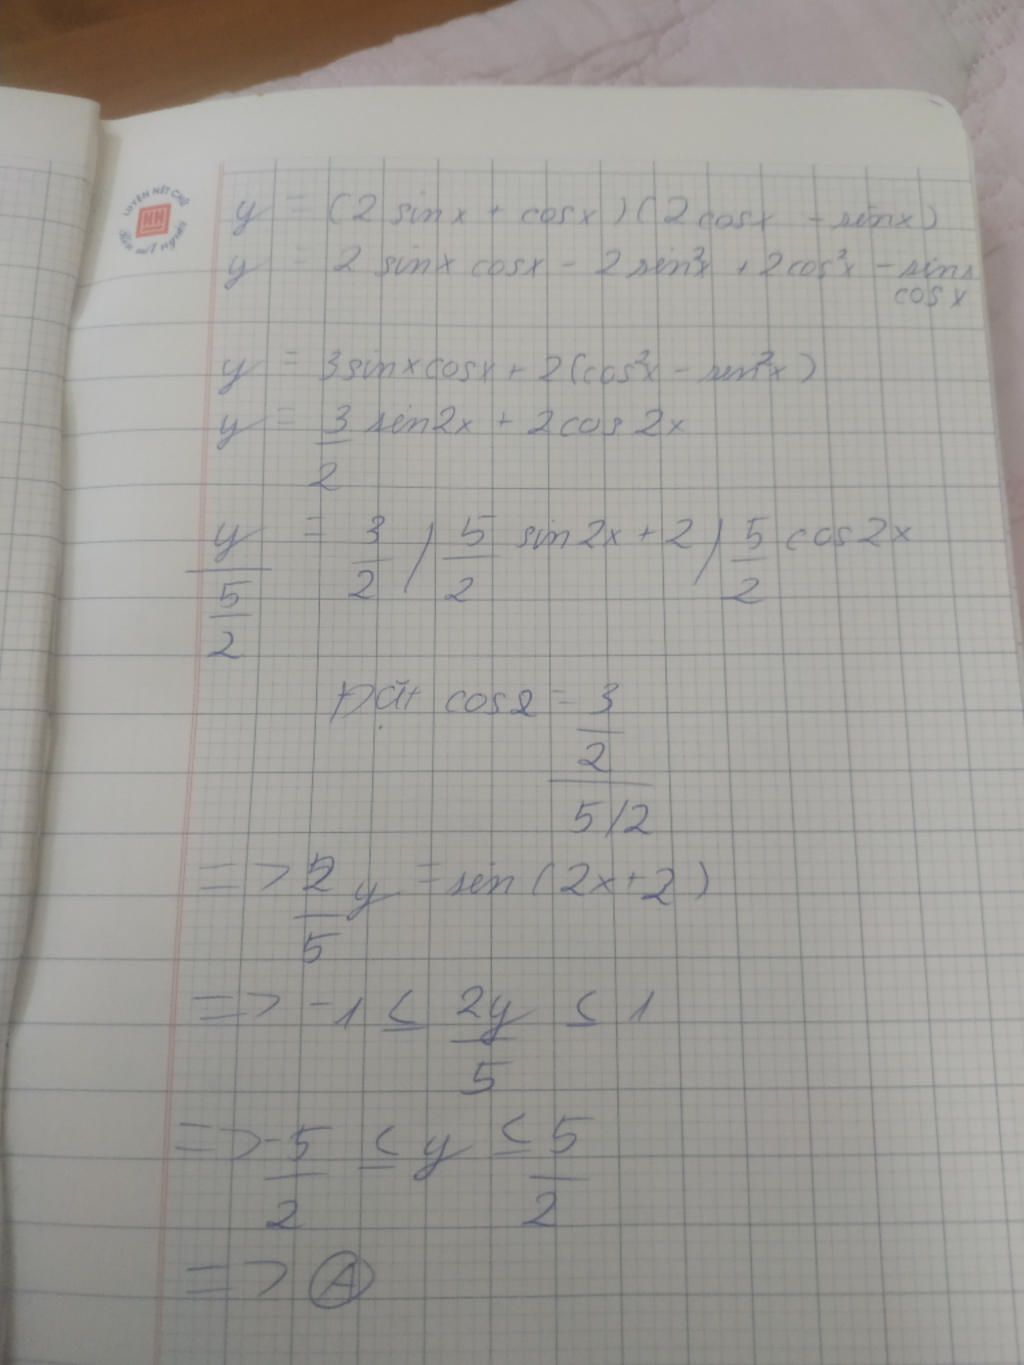 LUYỆN NÉT CHỮ
HH
y = (2 sinx + cosx)(2cosx - sinx)
y = 2 sinx cosx - 2 sin²x + 2cos²x - sinx
cosx
y = 3sinxcosx + 2(cos²x - sin²x)
y = 3/2 sin2x + 2cos2x
y/(5/2) = 3/2 / 5/2 sin2x + 2 / 5/2 cos2x
Đặt cos2 = 3/2 / 5/2
=> 2/5 y = sin(2x+2)
=> -1 ≤ 2y/5 ≤ 1
=> -5/2 ≤ y ≤ 5/2
=> A